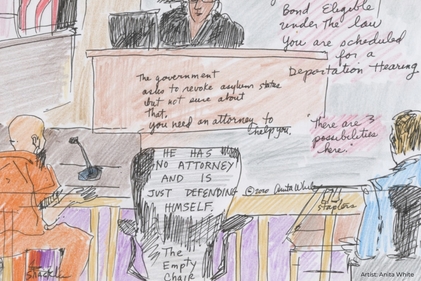 Bond Eligible
under the law
You are scheduled
for a
Deportation Hearing
The government
asks to revoke asylum status
but not sure about
that,
you need an attorney to
help you.
"There are 3
possibilities
here."
HE HAS
NO ATTORNEY
AND IS
JUST DEFENDING
HIMSELF.
©2020 Anita White
staplers
The
Empty
Chair
Shackle
Artist: Anita White